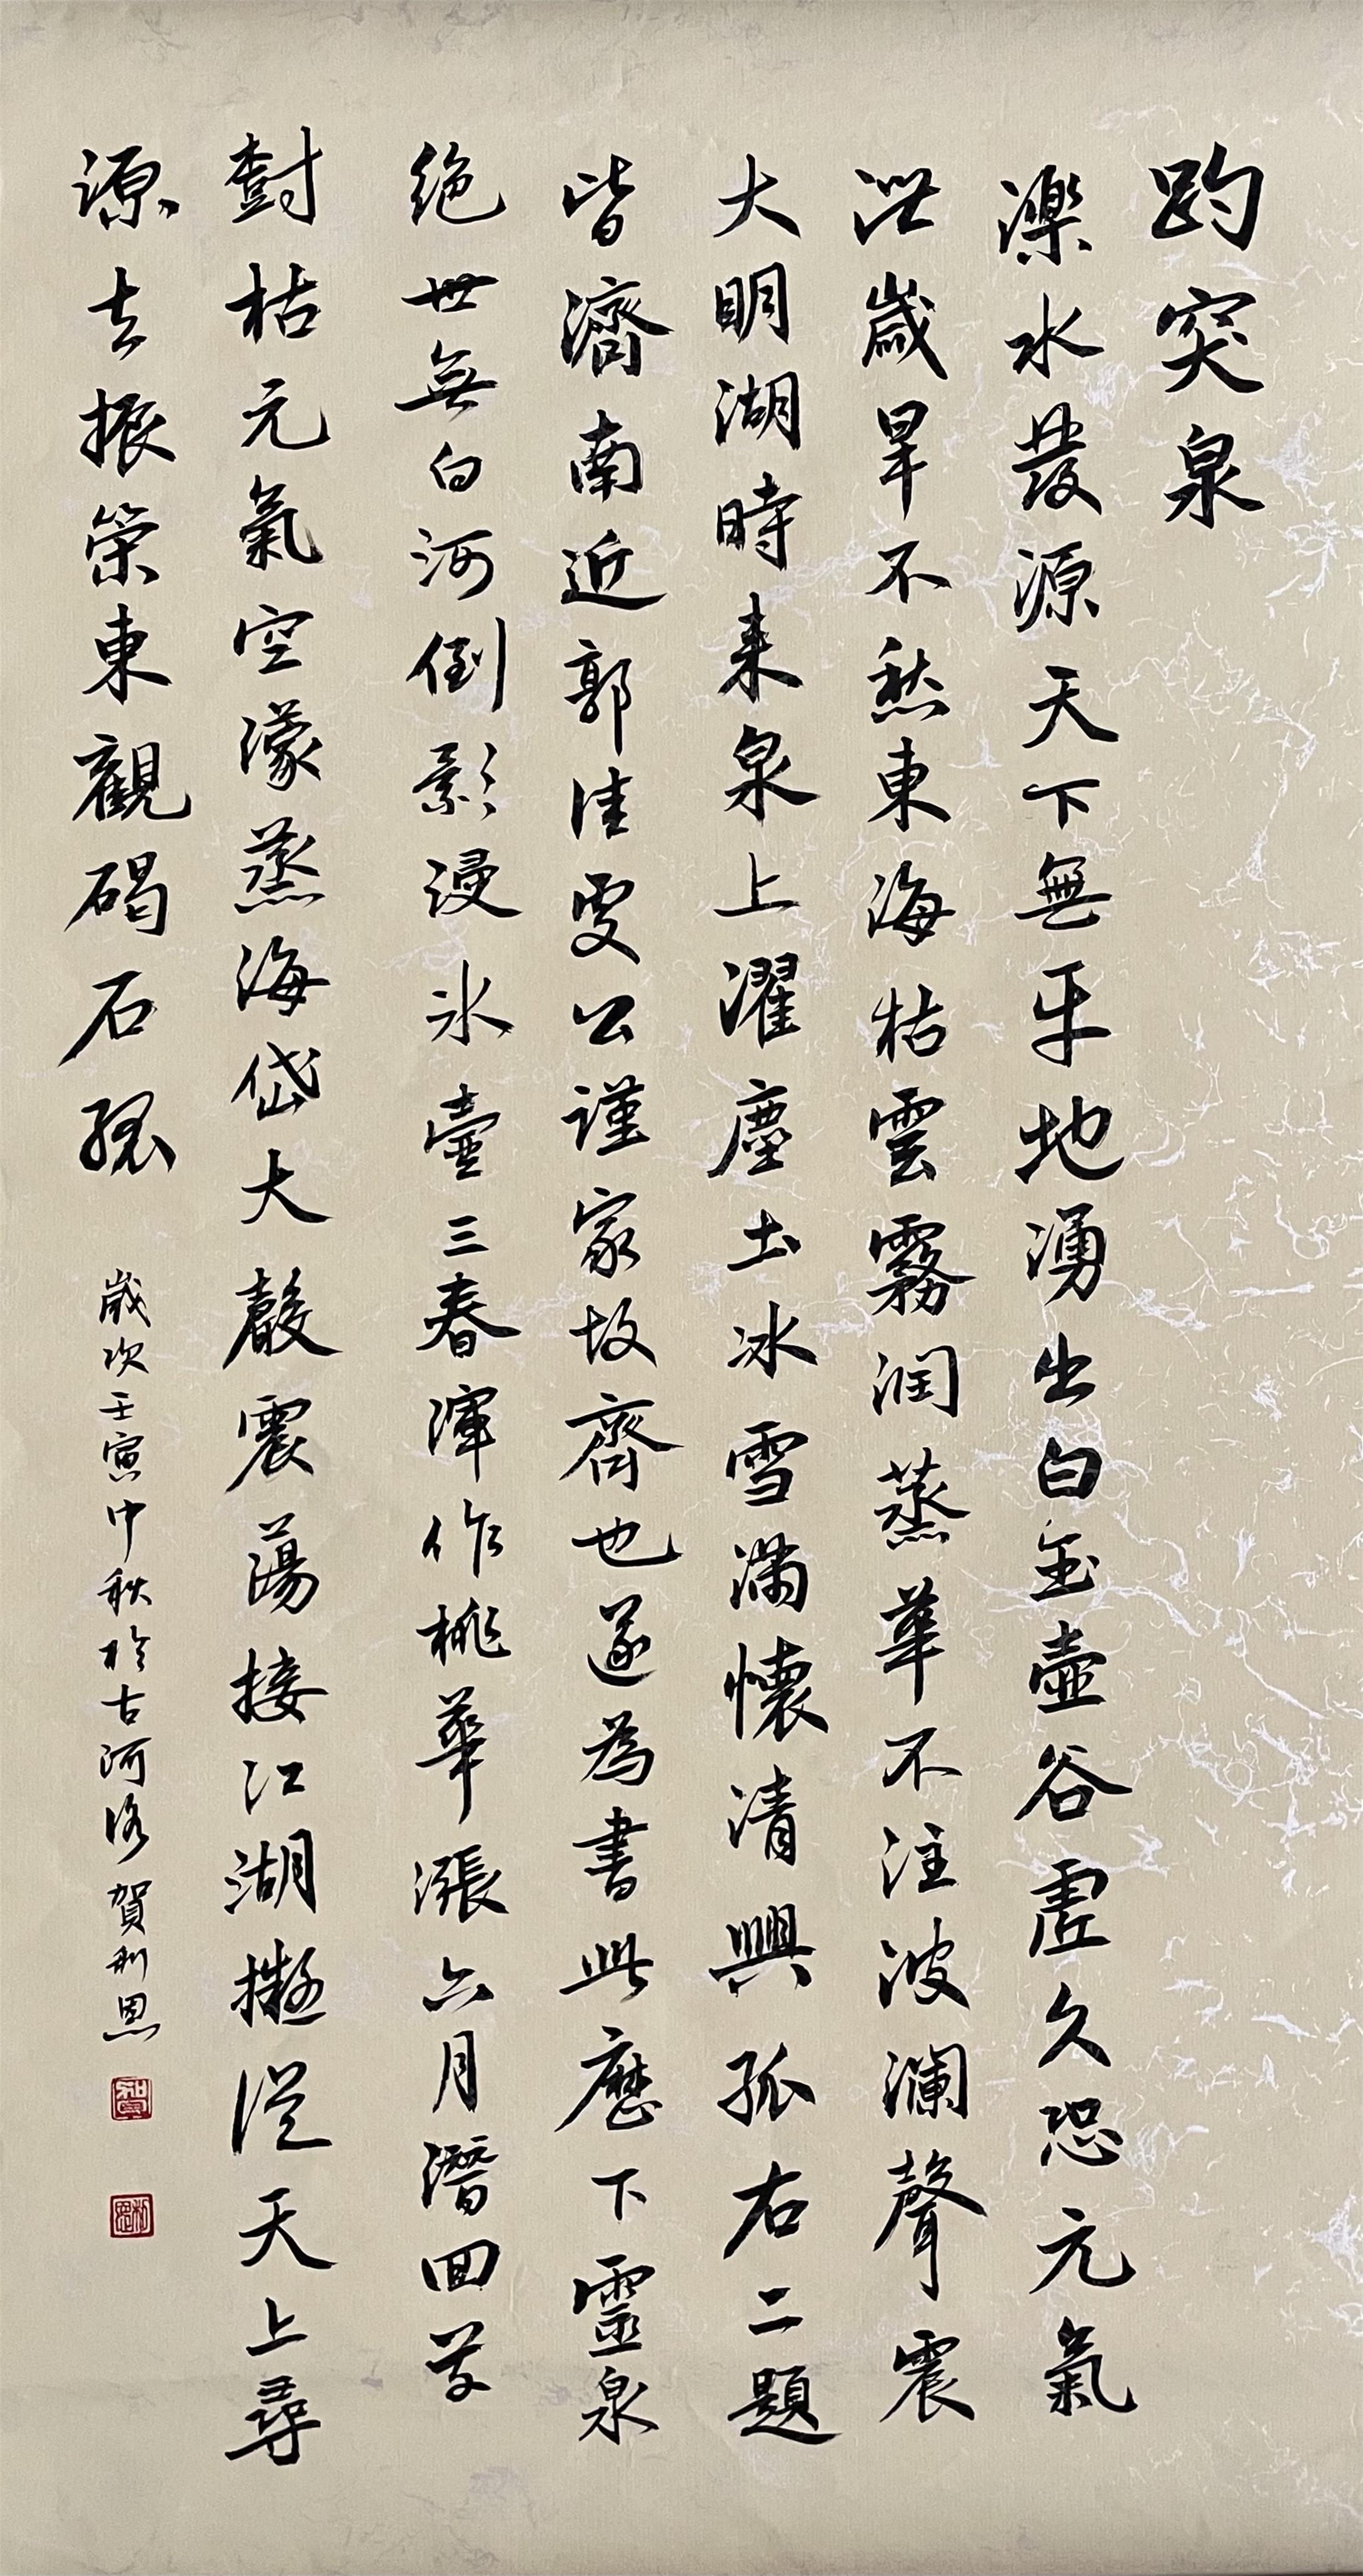 趵突泉
濼水發源天下無平地湧出白玉壺谷虛久恐元氣
泄歲旱不愁東海枯雲霧潤蒸華不注波瀾聲震
大明湖時來泉上濯塵土冰雪滿懷清興孤右二題
皆濟南近郭佳處公謹家故齊也遂為書此歷下靈泉
絕世無白河倒影浸冰壺三春渾作桃華漲六月潛回草
樹枯元氣空濛蒸海岱大聲震蕩接江湖擬從天上尋
源去振策東觀碣石孤
歲次壬寅中秋於古河洛賀利恩